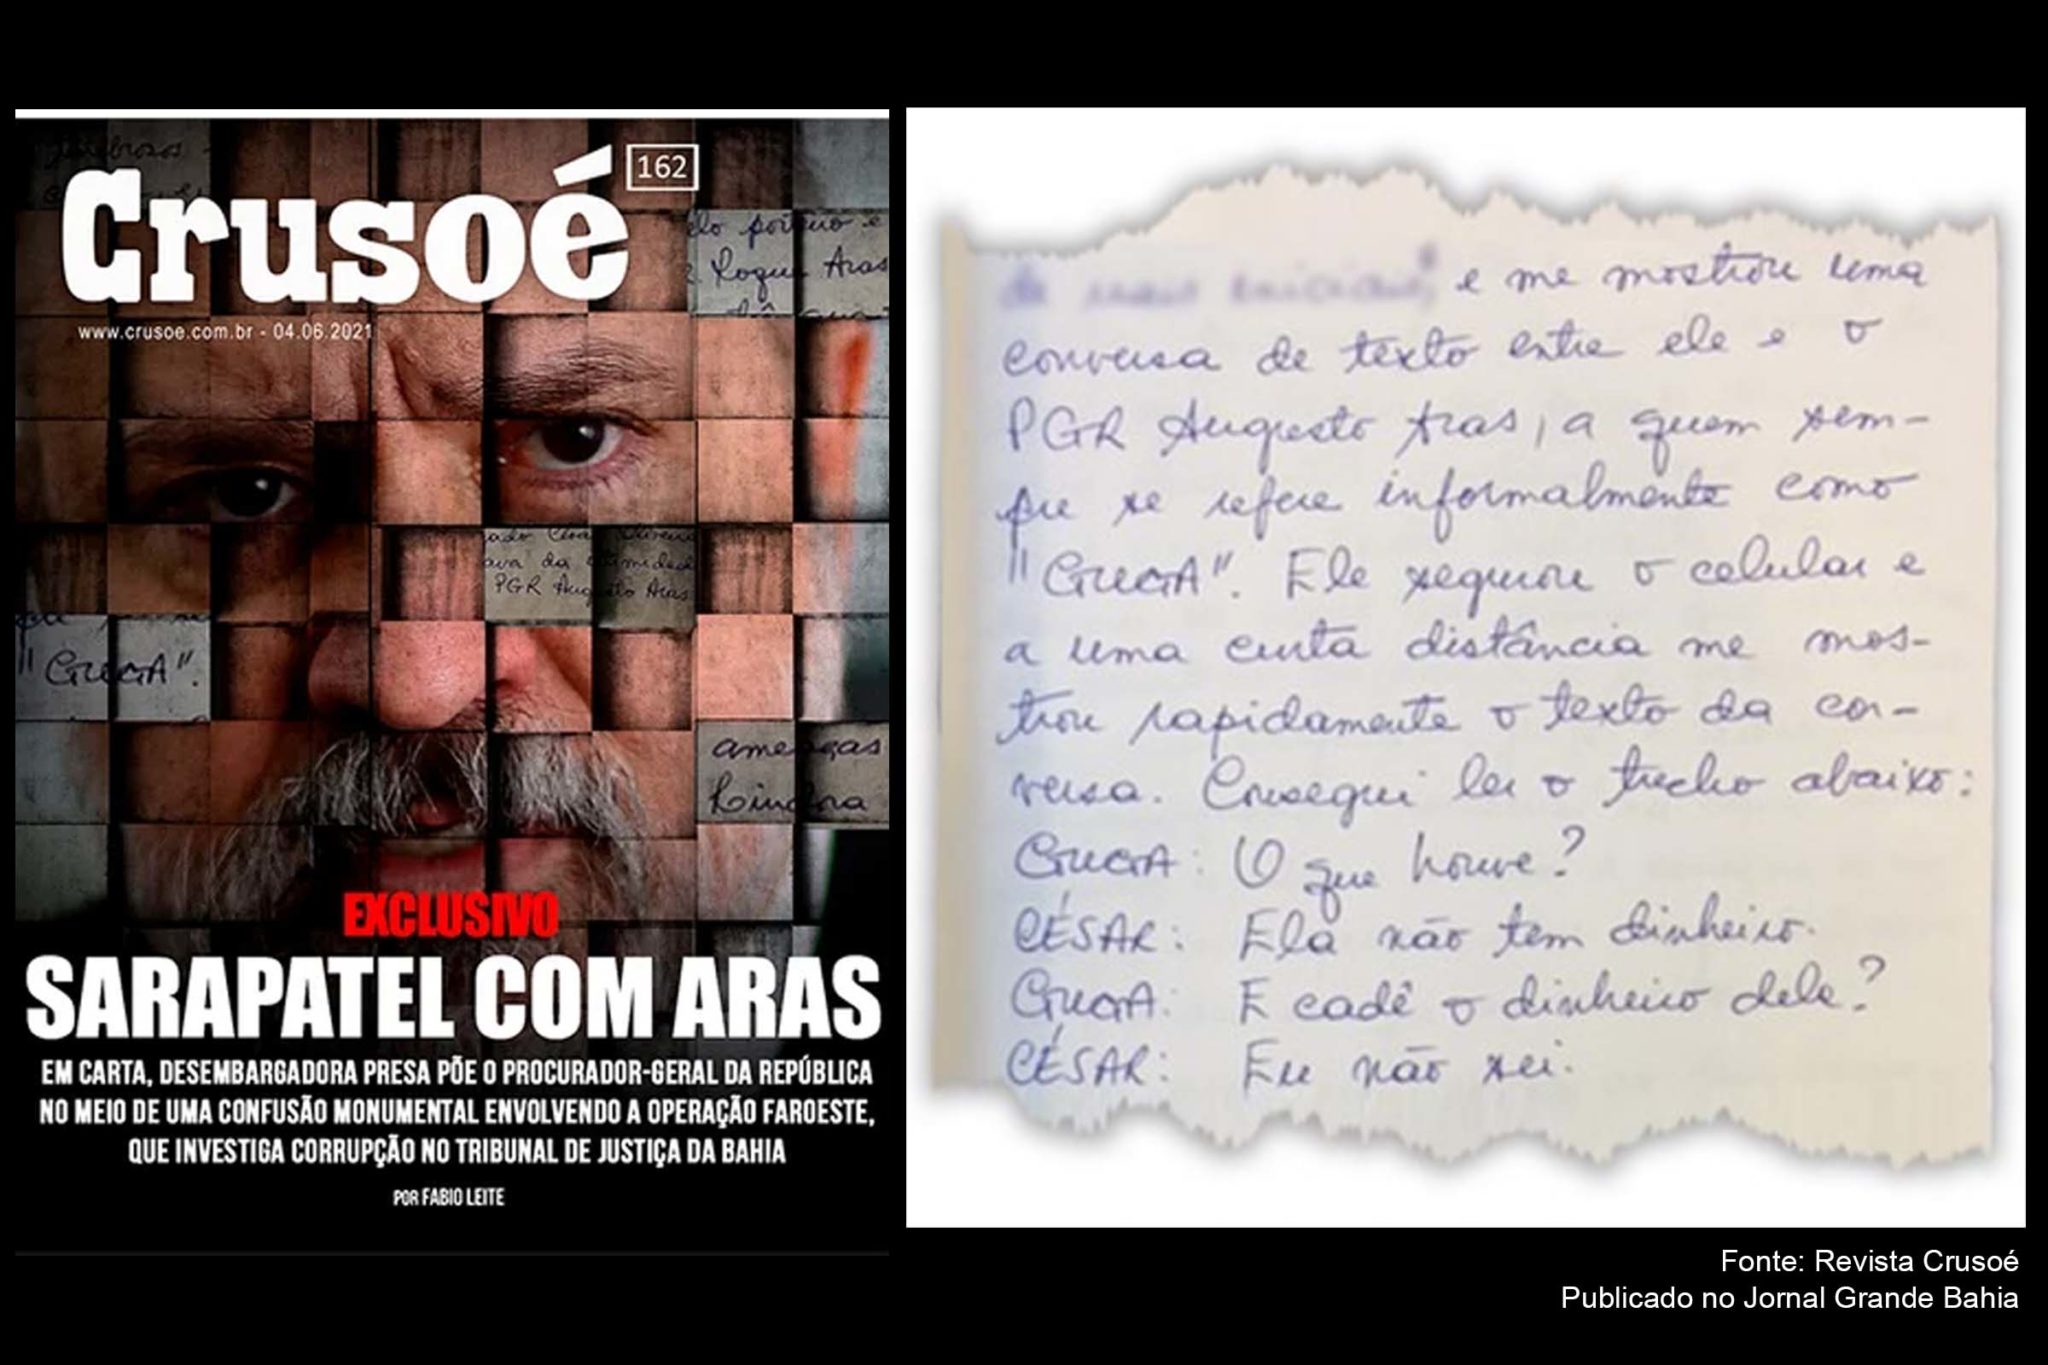 Crusoé
162
www.crusoe.com.br - 04.06.2021
elo
Roque Aras
ado
ava da
PGR Augusto Aras
"GUGA".
ameaças
EXCLUSIVO
SARAPATEL COM ARAS
EM CARTA, DESEMBARGADORA PRESA PÕE O PROCURADOR-GERAL DA REPÚBLICA
NO MEIO DE UMA CONFUSÃO MONUMENTAL ENVOLVENDO A OPERAÇÃO FAROESTE,
QUE INVESTIGA CORRUPÇÃO NO TRIBUNAL DE JUSTIÇA DA BAHIA
POR FABIO LEITE
e me mostrou uma
conversa de texto entre ele e o
PGR Augusto Aras, a quem sem-
pre se refere informalmente como
"GUGA". Ele segurou o celular e
a uma curta distância me mos-
trou rapidamente o texto da con-
versa. Consegui ler o trecho abaixo:
GUGA: O que houve?
CÉSAR: Ela não tem dinheiro.
GUGA: E cadê o dinheiro dela?
CÉSAR: Eu não sei.
Fonte: Revista Crusoé
Publicado no Jornal Grande Bahia